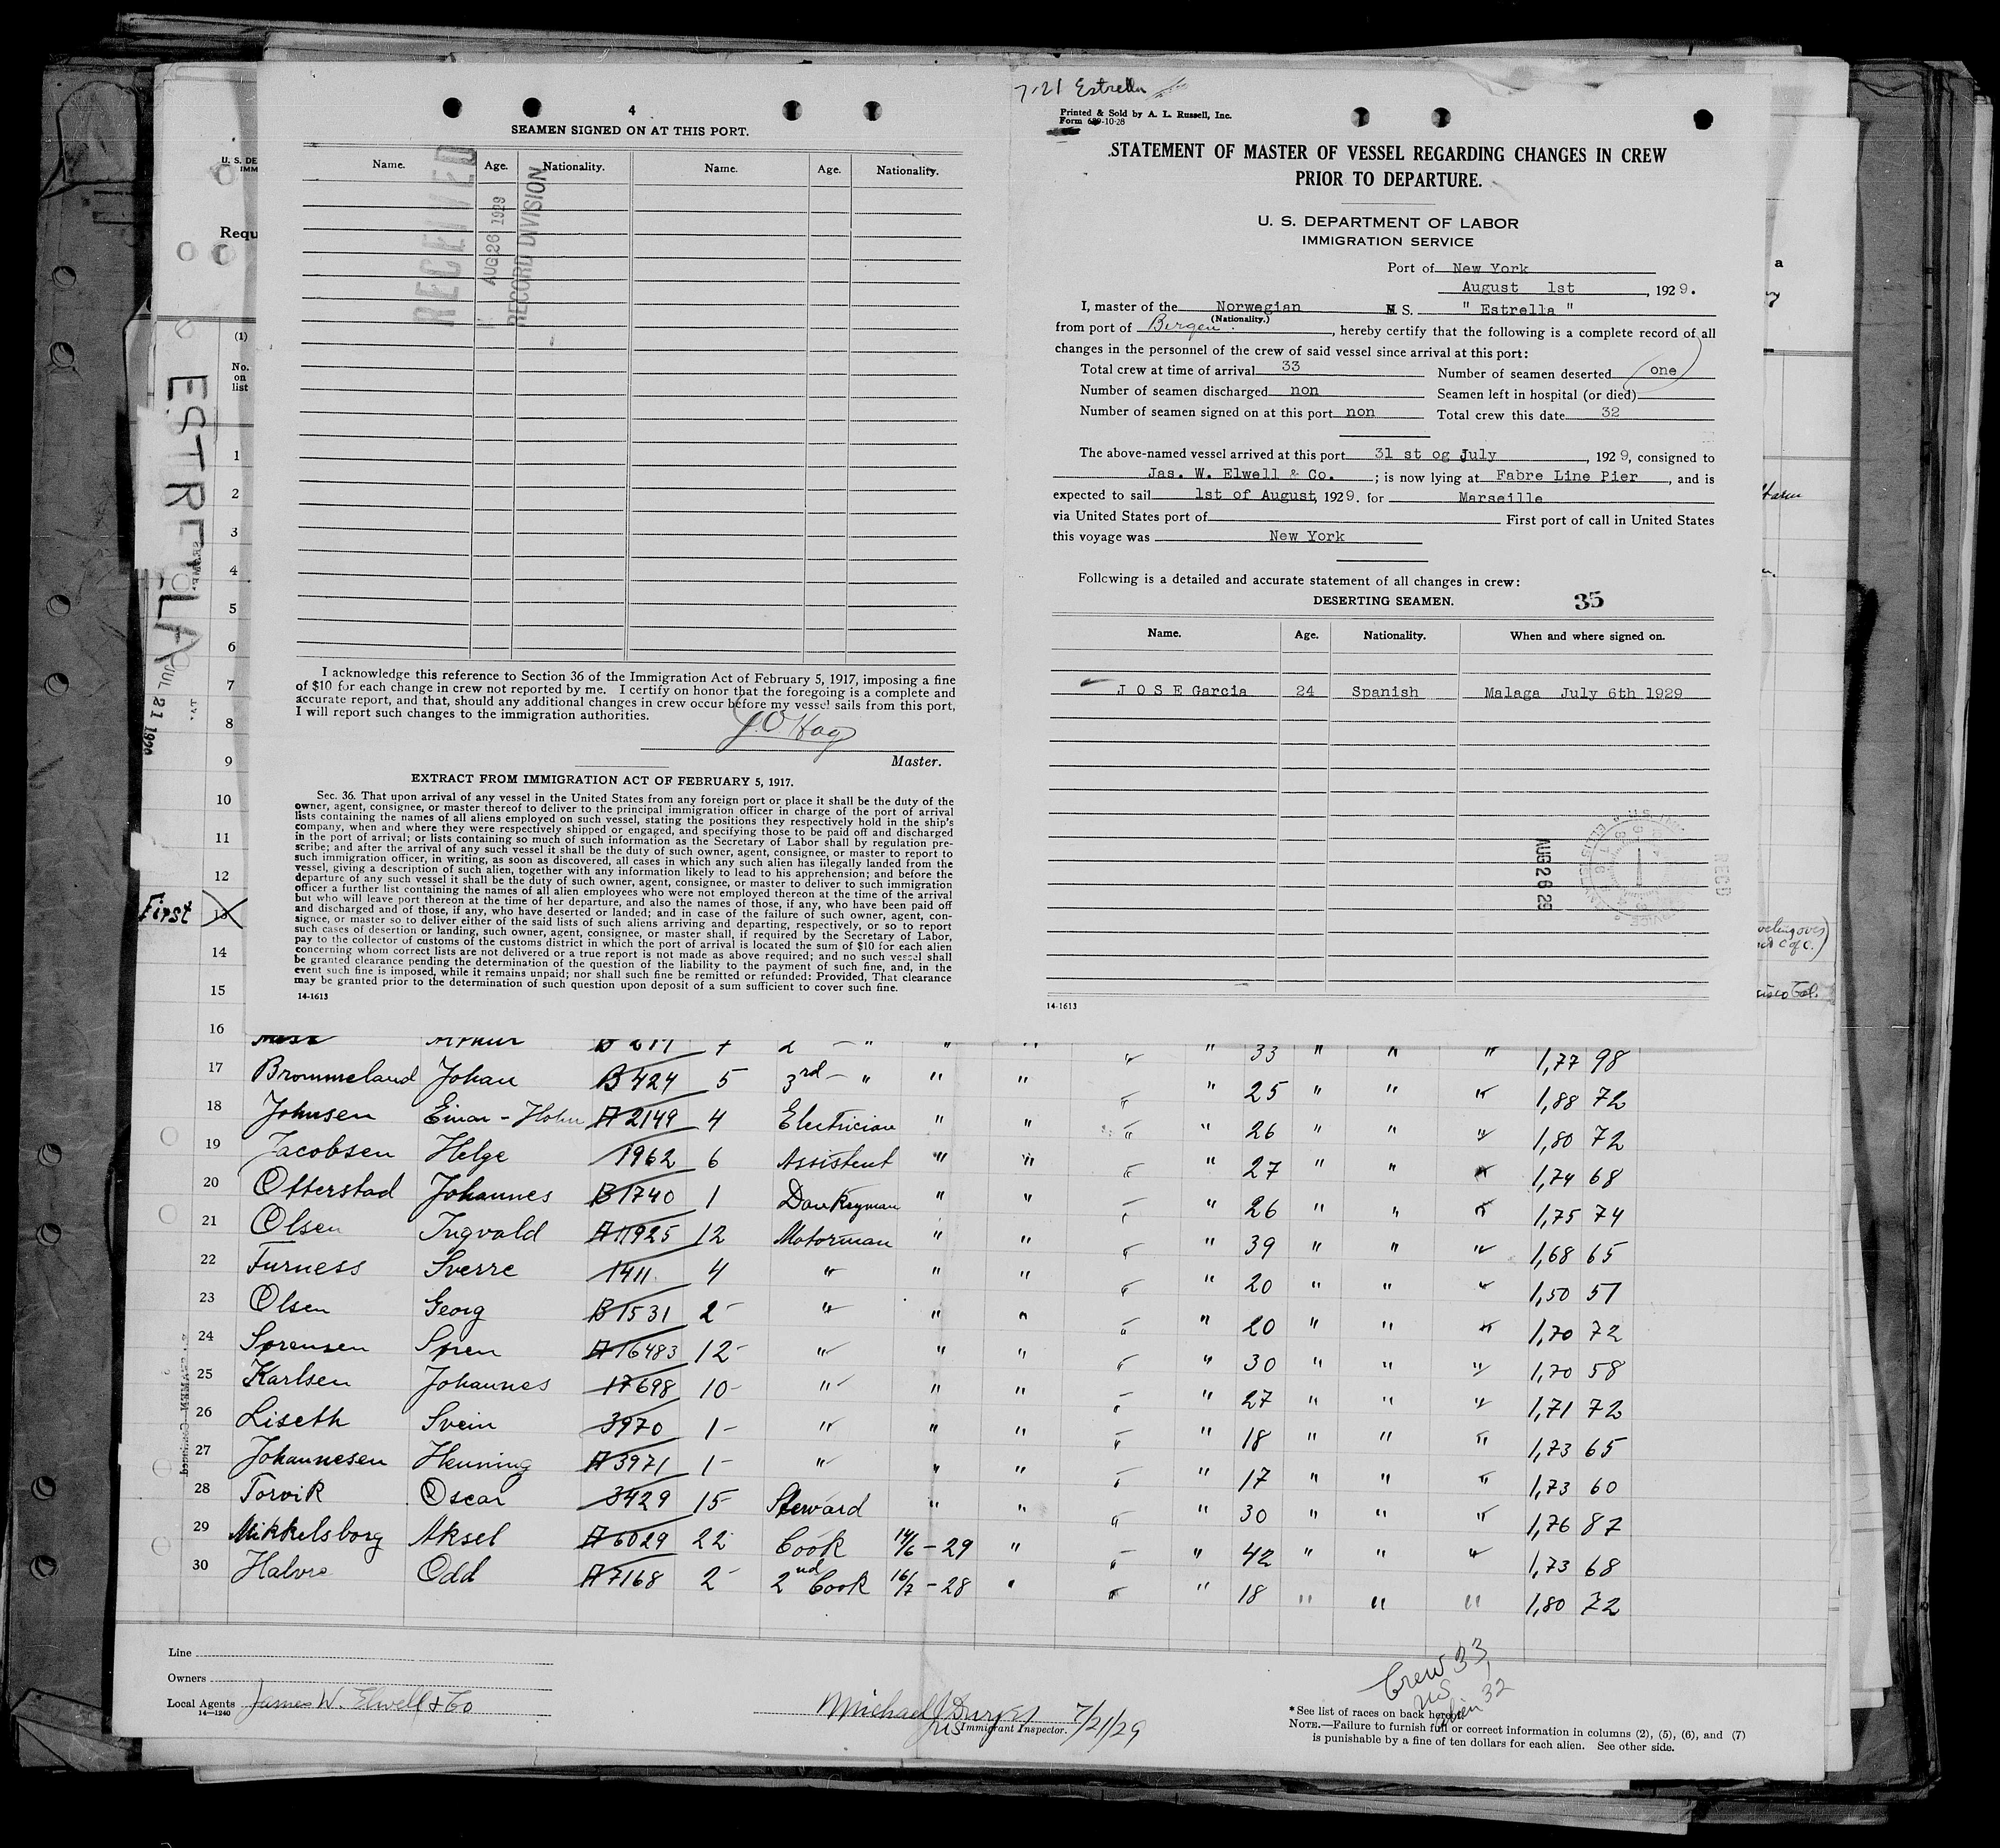 4
SEAMEN SIGNED ON AT THIS PORT.
Name. Age. Nationality. Name. Age. Nationality.
RECEIVED
AUG 26 1929
RECORD DIVISION
I acknowledge this reference to Section 36 of the Immigration Act of February 5, 1917, imposing a fine
of $10 for each change in crew not reported by me. I certify on honor that the foregoing is a complete and
accurate report, and that, should any additional changes in crew occur before my vessel sails from this port,
I will report such changes to the immigration authorities.
Master.
EXTRACT FROM IMMIGRATION ACT OF FEBRUARY 5, 1917.
Sec. 36. That upon arrival of any vessel in the United States from any foreign port or place it shall be the duty of the
owner, agent, consignee, or master thereof to deliver to the principal immigration officer in charge of the port of arrival
lists containing the names of all aliens employed on such vessel, stating the positions they respectively hold in the ship's
company, when and where they were respectively shipped or engaged, and specifying those to be paid off and discharged
in the port of arrival; or lists containing so much of such information as the Secretary of Labor shall by regulation pre-
scribe; and after the arrival of any such vessel it shall be the duty of such owner, agent, consignee, or master to report to
such immigration officer, in writing, as soon as discovered, all cases in which any such alien has illegally landed from the
vessel, giving a description of such alien, together with any information likely to lead to his apprehension; and before the
departure of any such vessel it shall be the duty of such owner, agent, consignee, or master to deliver to such immigration
officer a further list containing the names of all alien employees who were not employed thereon at the time of the arrival
but who will leave port thereon at the time of her departure, and also the names of those, if any, who have been paid off
and discharged and of those, if any, who have deserted or landed; and in case of the failure of such owner, agent, con-
signee, or master so to deliver either of the said lists of such aliens arriving and departing, respectively, or so to report
such cases of desertion or landing, such owner, agent, consignee, or master shall, if required by the Secretary of Labor,
pay to the collector of customs of the customs district in which the port of arrival is located the sum of $10 for each alien
concerning whom correct lists are not delivered or a true report is not made as above required; and no such vessel shall
be granted clearance pending the determination of the question of the liability to the payment of such fine, and, in the
event such fine is imposed, while it remains unpaid; nor shall such fine be remitted or refunded: Provided, That clearance
may be granted prior to the determination of such question upon deposit of a sum sufficient to cover such fine.
14-1613
7-21 Estrella
Printed & Sold by A. L. Russell, Inc.
Form 689-10-28
STATEMENT OF MASTER OF VESSEL REGARDING CHANGES IN CREW
PRIOR TO DEPARTURE.
U. S. DEPARTMENT OF LABOR
IMMIGRATION SERVICE
Port of New York
August 1st, 1929.
I, master of the Norwegian M S. " Estrella "
(Nationality.)
from port of Bergen, hereby certify that the following is a complete record of all
changes in the personnel of the crew of said vessel since arrival at this port:
Total crew at time of arrival 33 Number of seamen deserted one
Number of seamen discharged non Seamen left in hospital (or died)
Number of seamen signed on at this port non Total crew this date 32
The above-named vessel arrived at this port 31 st og July, 1929, consigned to
Jas. W. Elwell & Co.; is now lying at Fabre Line Pier, and is
expected to sail 1st of August, 1929. for Marseille
via United States port of First port of call in United States
this voyage was New York
Following is a detailed and accurate statement of all changes in crew:
DESERTING SEAMEN. 35
Name. Age. Nationality. When and where signed on.
J O S E Garcia 24 Spanish Malaga July 6th 1929
AUG 26 29
REC'D
14-1613
U. S. DE
IMM
Requ
(1)
No.
on
list
ESTRELLA
JUL 21 1929
1
2
3
4
5
6
7
8
9
10
11
12
First 13
14
15
16 Arthur 2 - " " " " " 33 " " " 1,77 98
17 Brommeland Johan B 424 5 3rd - " " " " " 25 " " " 1,88 72
18 Johnsen Einar - Holm A 2149 4 Electrician " " " " 26 " " " 1,80 72
19 Jacobsen Helge 1962 6 Assistent " " " " 27 " " " 1,74 68
20 Otterstad Johannes B 1740 1 Donkeyman " " " " 26 " " " 1,75 74
21 Olsen Ingvald A 11925 12 Motorman " " " " 39 " " " 1,68 65
22 Furness Sverre 1411 4 " " " " " 20 " " " 1,50 51
23 Olsen Georg B 1531 2 - " " " " " 20 " " " 1,70 72
24 Sørensen Søren A 16483 12 - " " " " " 30 " " " 1,70 58
25 Karlsen Johannes 17698 10 - " " " " " 27 " " " 1,71 72
26 Liseth Svein 3970 1 - " " " " " 18 " " " 1,73 65
27 Johannesen Henning A 3971 1 - " " " " " 17 " " " 1,73 60
28 Torvik Oscar 3429 15 Steward " " " " 30 " " " 1,76 87
29 Mikkelsborg Aksel A 6029 22 Cook 14/6 - 29 " " " 42 " " " 1,73 68
30 Halvrs Odd A 7168 2 - 2nd Cook 16/7 - 28 " " " 18 " " " 1,80 72
Line
Owners
Local Agents James W. Elwell & Co
14-1240
Michael
Immigrant Inspector. 7/21/29
Crew 33
US
alien 32
* See list of races on back hereof.
NOTE.—Failure to furnish full or correct information in columns (2), (5), (6), and (7)
is punishable by a fine of ten dollars for each alien. See other side.